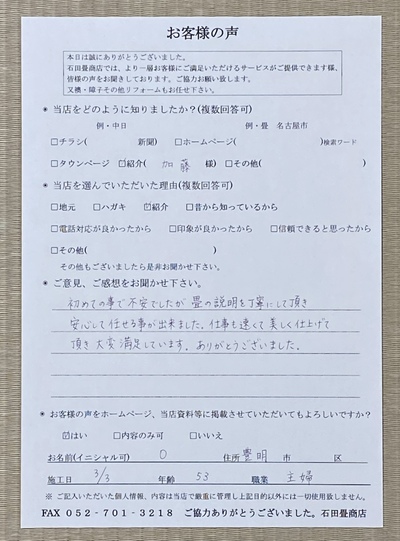 お客様の声
本日は誠にありがとうございました。
石田畳商店では、より一層お客様にご満足いただけるサービスがご提供できます様、
皆様の声をお聞きしております。ご協力お願い致します。
又襖・障子その他リフォームもお任せ下さい。
* 当店をどのように知りましたか?(複数回答可)
例・中日 例・畳 名古屋市
□チラシ( 新聞) □ホームページ( )検索ワード
□タウンページ ☑紹介( 加藤 様) □その他( )
* 当店を選んでいただいた理由(複数回答可)
□地元 □ハガキ ☑紹介 □昔から知っているから
□電話対応が良かったから □印象が良かったから □信頼できると思ったから
□その他( )
その他もございましたら是非お聞かせ下さい。
* ご意見、ご感想をお聞かせ下さい。
初めての事で不安でしたが 畳の説明を丁寧にして頂き
安心して任せる事が出来ました。仕事も速くて美しく仕上げて
頂き 大変満足しています。ありがとうございました。
* お客様の声をホームページ、当店資料等に掲載させていただいてもよろしいですか?
☑はい □内容のみ可 □いいえ
お名前(イニシャル可) O 住所 豊明 市 区
施工日 3/3 年齢 53 職業 主婦
※ ご記入いただいた個人情報、内容は当店で厳重に管理し上記目的以外には一切使用致しません。
FAX 052-701-3218 ご協力ありがとうございました。石田畳商店